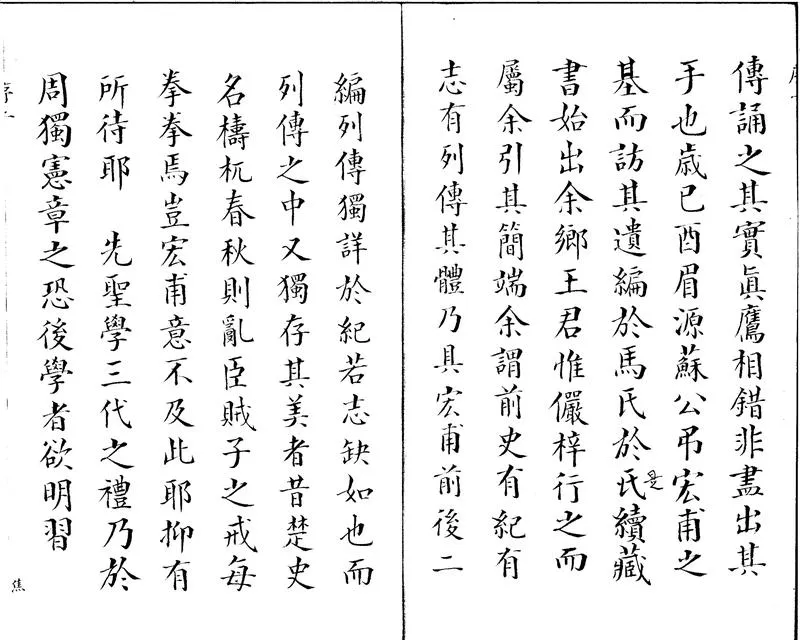 傳誦之其實眞鷹相錯非盡出其
手也歳已酉眉源蘇公弔宏甫之
基而訪其遺編於馬氏於氏續藏
是
書始出余鄉王君惟儼梓行之而
屬余引其簡端余謂前史有紀有
志有列傳其體乃具宏甫前後二
編列傳獨詳於紀若志缺如也而
列傳之中又獨存其美者昔楚史
名檮杌春秋則亂臣賊子之戒每
拳拳焉豈宏甫意不及此耶抑有
所待耶　先聖學三代之禮乃於
周獨憲章之恐後學者欲明習
焦